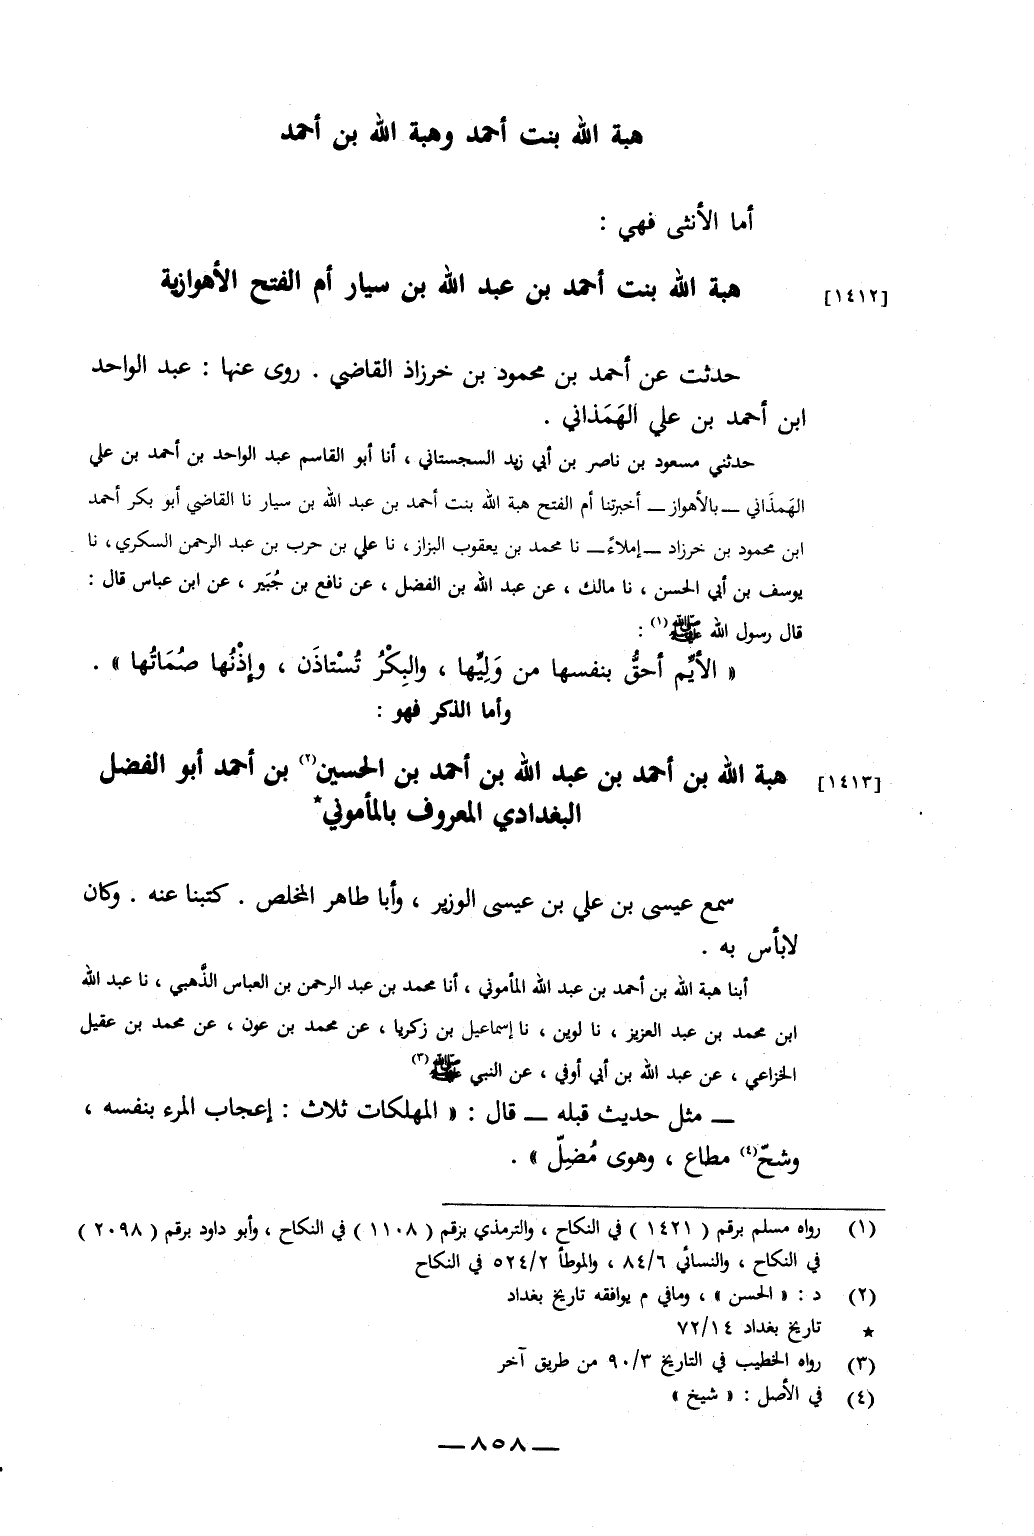 هبة الله بنت أحمد وهبة الله بن أحمد
أما الأنثى فهي :
[١٤١٢] هبة الله بنت أحمد بن عبد الله بن سيار أم الفتح الأهوازية
حدثت عن أحمد بن محمود بن خرزاذ القاضي . روى عنها : عبد الواحد
ابن أحمد بن علي الهَمَذاني .
حدثني مسعود بن ناصر بن أبي زيد السجستاني ، أنا أبو القاسم عبد الواحد بن أحمد بن علي
الهَمذَاني ــ بالأهواز ــ أخبرتنا أم الفتح هبة الله بنت أحمد بن عبد الله بن سيار نا القاضي أبو بكر أحمد
ابن محمود بن خرزاد ــ إملاءً ــ نا محمد بن يعقوب البزاز ، نا علي بن حرب بن عبد الرحمن السكري ، نا
يوسف بن أبي الحسن ، نا مالك ، عن عبد الله بن الفضل ، عن نافع بن جُبَير ، عن ابن عباس قال :
قال رسول الله ﷺ(١) :
« الأيِّم أحقُّ بنفسها من وَلِيِّها ، والبِكْرُ تُسْتاذَن ، وإِذْنُها صُمَاتُها » .
وأما الذكر فهو :
[١٤١٣] هبة الله بن أحمد بن عبد الله بن أحمد بن الحسين(٢) بن أحمد أبو الفضل
البغدادي المعروف بالمأموني*
سمع عيسى بن علي بن عيسى الوزير ، وأبا طاهر المخلص . كتبنا عنه . وكان
لابأس به .
أبنا هبة الله بن أحمد بن عبد الله المأموني ، أنا محمد بن عبد الرحمن بن العباس الذَّهبي ، نا عبد الله
ابن محمد بن عبد العزيز ، نا لوين ، نا إسماعيل بن زكريا ، عن محمد بن عون ، عن محمد بن عقيل
الخزاعي ، عن عبد الله بن أبي أوفي ، عن النبي ﷺ(٣)
ــ مثل حديث قبله ــ قال : « المهلكات ثلاث : إعجاب المرء بنفسه ،
وشحّ(٤) مطاع ، وهوى مُضِلّ » .
(١) رواه مسلم برقم ( ١٤٢١ ) في النكاح ، والترمذي برقم ( ١١٠٨ ) في النكاح ، وأبو داود برقم ( ٢٠٩٨ )
في النكاح ، والنسائي ٨٤/٦ ، والموطأ ٥٢٤/٢ في النكاح
(٢) د : « الحسن » ، ومافي م يوافقه تاريخ بغداد
* تاريخ بغداد ٧٢/١٤
(٣) رواه الخطيب في التاريخ ٩٠/٣ من طريق آخر
(٤) في الأصل : « شيخ »
ــ ٨٥٨ ــ